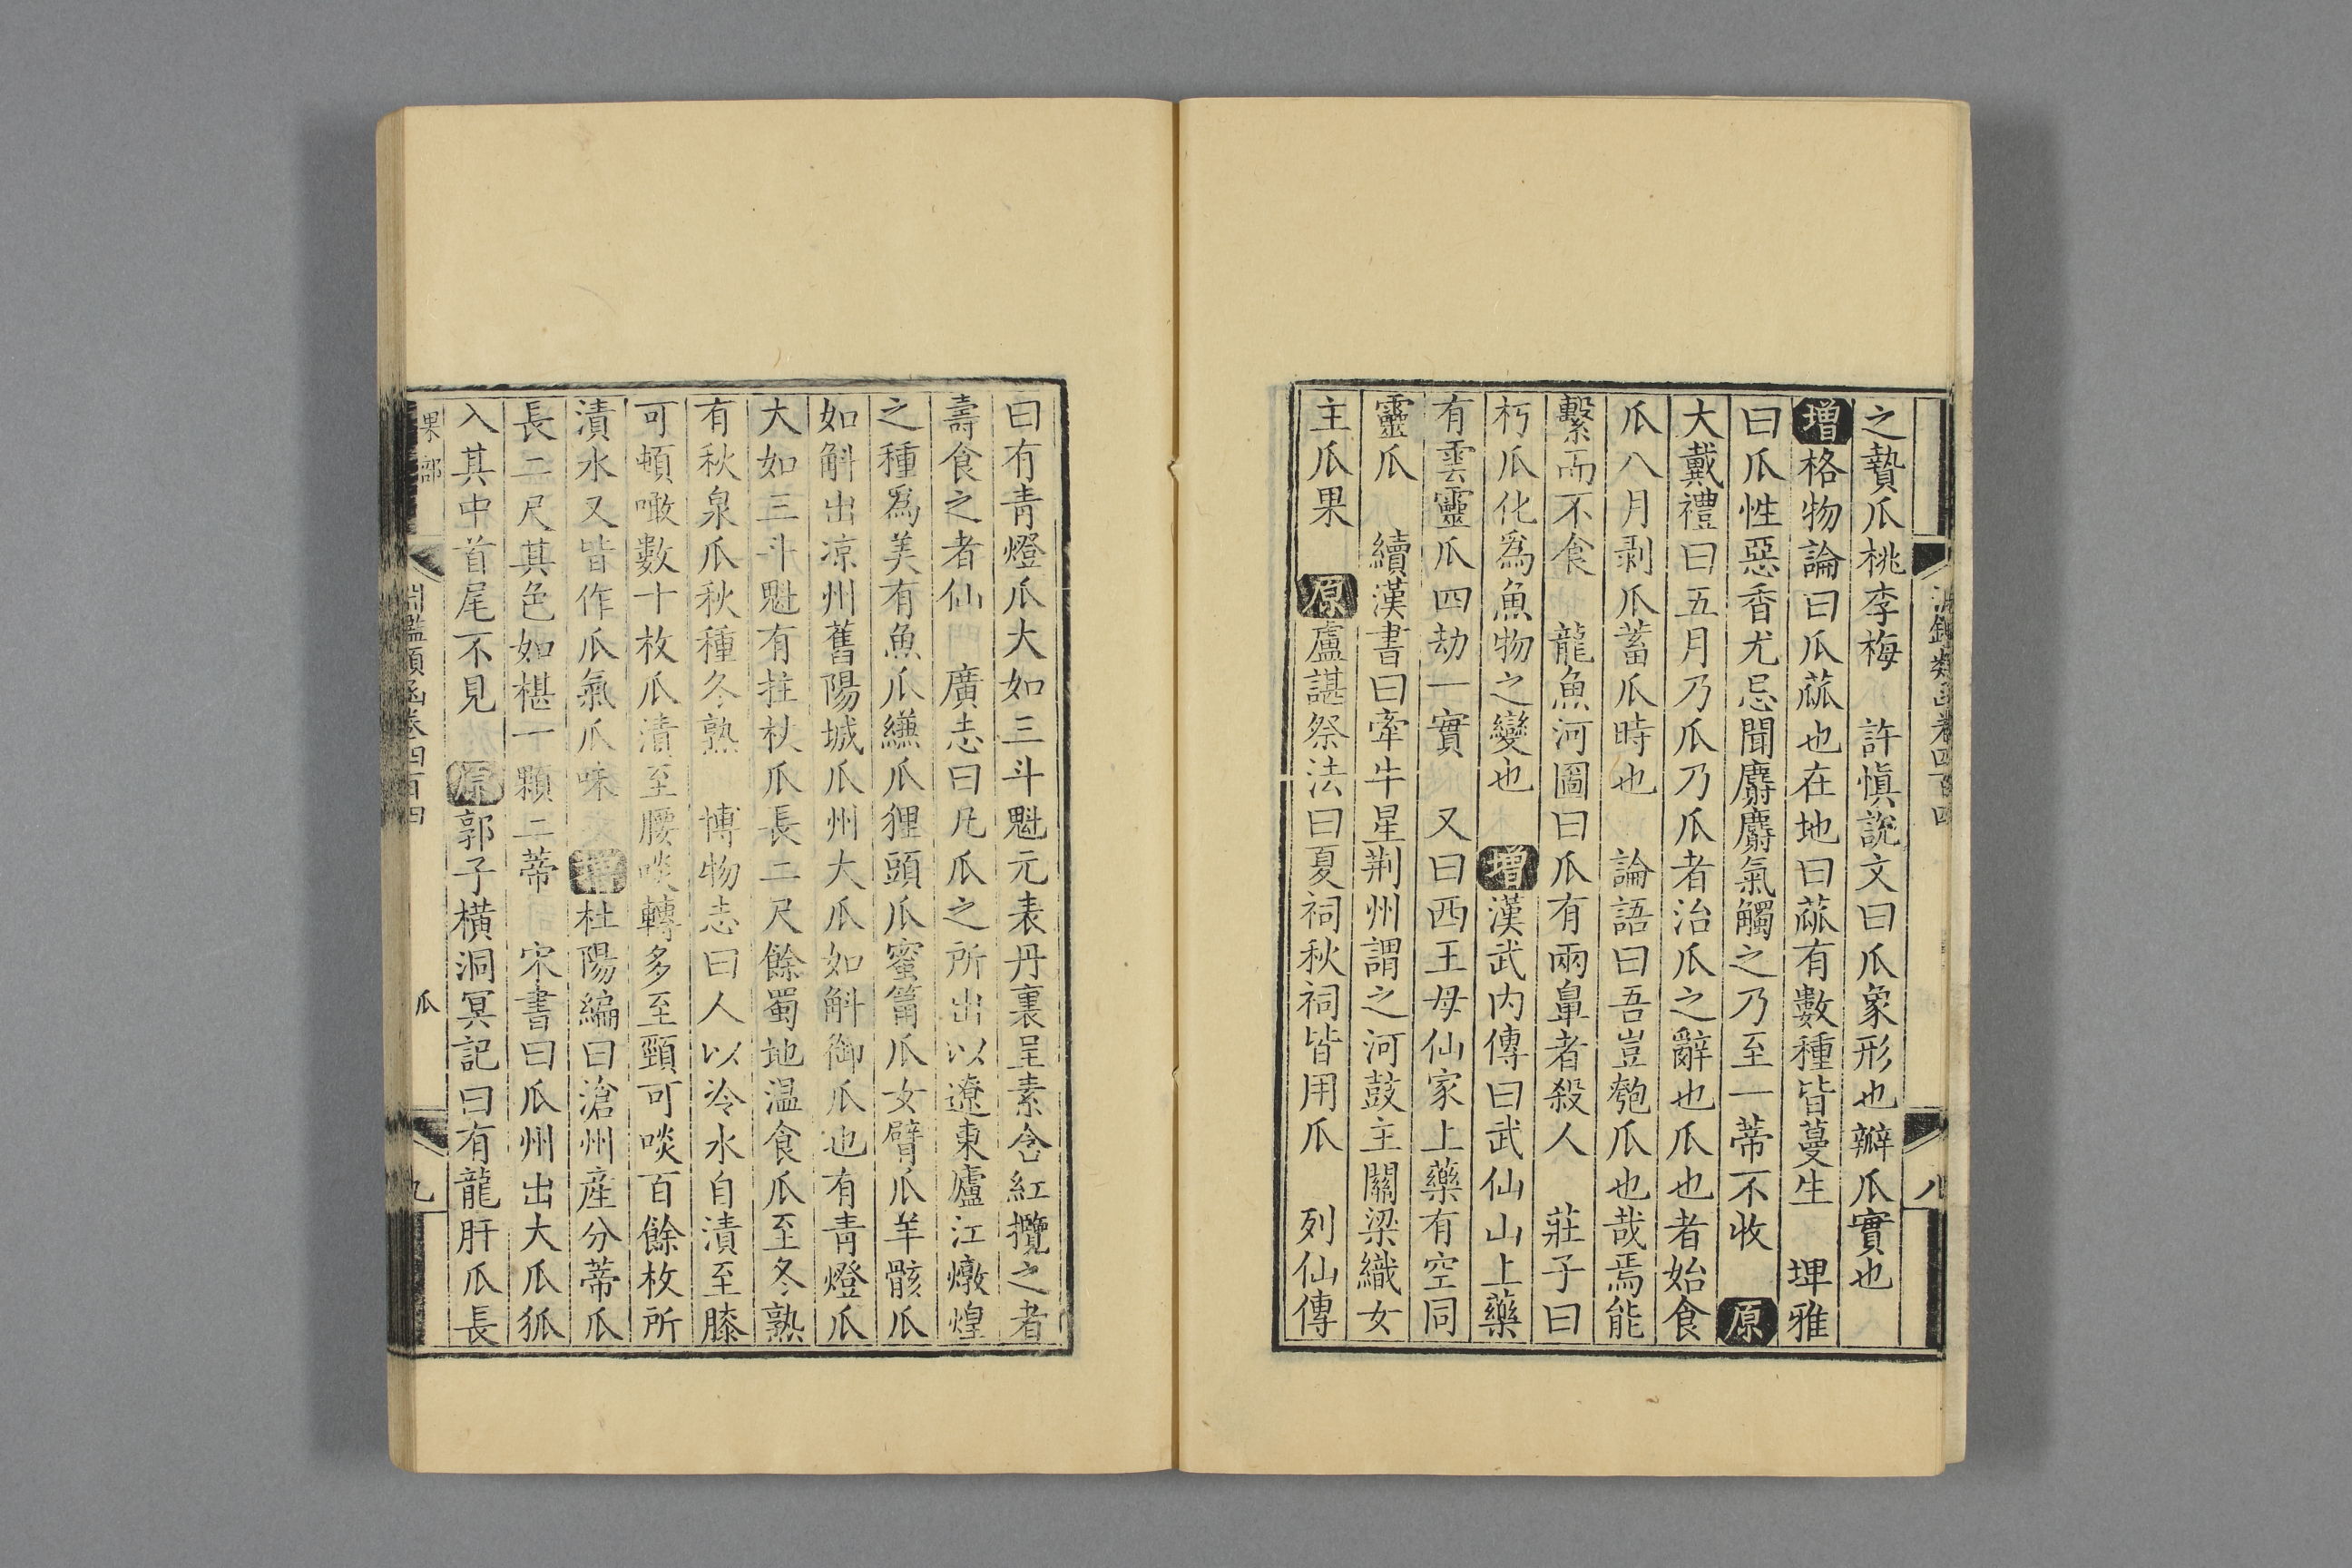 淵鑑類函卷四百四
八
之贄瓜桃李梅　許愼說文曰瓜象形也瓣瓜實也
增格物論曰瓜蓏也在地曰蓏有數種皆蔓生　埤雅
曰瓜性惡香尤忌聞麝麝氣觸之乃至一蒂不收　原
大戴禮曰五月乃瓜乃瓜者治瓜之辭也瓜也者始食
瓜八月剥瓜蓄瓜時也　論語曰吾豈匏瓜也哉焉能
繫而不食　龍魚河圖曰瓜有兩鼻者殺人　莊子曰
朽瓜化爲魚物之變也　增漢武內傳曰武仙山上藥
有雲靈瓜四劫一實　又曰西王母仙家上藥有空同
靈瓜　續漢書曰牽牛星荆州謂之河鼓主關梁織女
主瓜果　原盧諶祭法曰夏祠秋祠皆用瓜　列仙傳
曰有青燈瓜大如三斗魁元表丹裏呈素含紅攬之者
壽食之者仙　廣志曰凡瓜之所出以遼東廬江燉煌
之種爲美有魚瓜縑瓜狸頭瓜蜜筩瓜女臂瓜羊骸瓜
如斛出涼州舊陽城瓜州大瓜如斛御瓜也有青燈瓜
大如三斗魁有拄杖瓜長二尺餘蜀地温食瓜至冬熟
有秋泉瓜秋種冬熟　博物志曰人以冷水自漬至膝
可頓噉數十枚瓜漬至腰啖轉多至頸可啖百餘枚所
漬水又皆作瓜氣瓜味　增杜陽編曰滄州産分蒂瓜
長二尺其色如椹一顆二蒂　宋書曰瓜州出大瓜狐
入其中首尾不見　原郭子橫洞冥記曰有龍肝瓜長
果部
淵鑑類函卷四百四
瓜
九